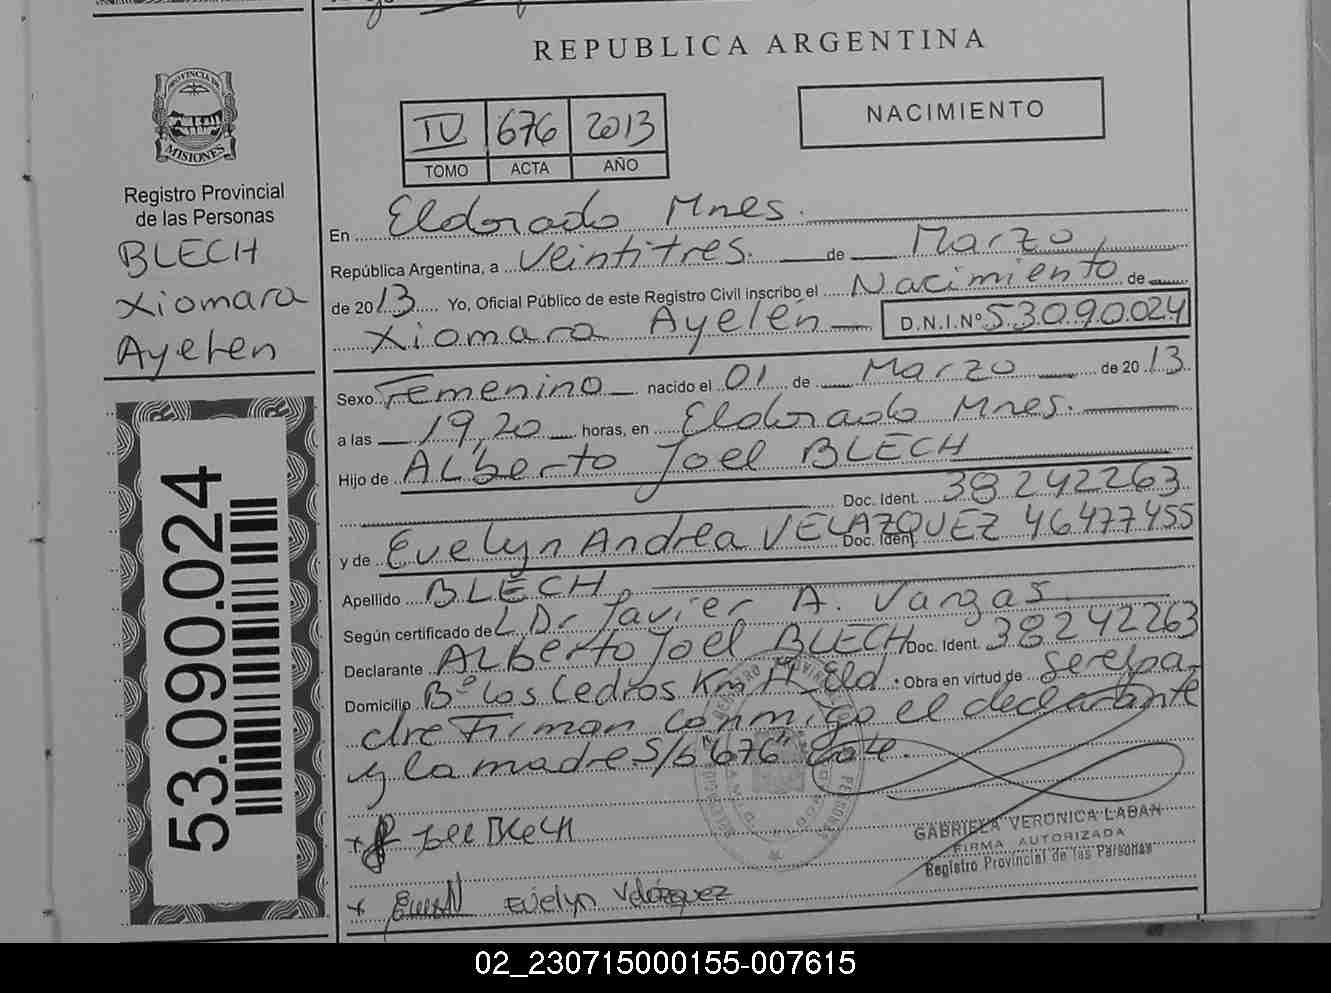 REPUBLICA ARGENTINA
NACIMIENTO
IV 676 2013
TOMO ACTA AÑO
PROVINCIA DE
MISIONES
Registro Provincial
de las Personas
BLECH
Xiomara
Ayelen
53.090.024
En Eldorado Mnes.
República Argentina, a veintitres de Marzo,
de 2013 Yo, Oficial Público de este Registro Civil inscribo el Nacimiento de
Xiomara Ayelén D.N.I.Nº 53.090.024
Sexo Femenino nacido el 01 de Marzo de 2013
a las 19,20 horas, en Eldorado Mnes.
Hijo de Alberto Joel BLECH
Doc. Ident. 38242263
y de Evelyn Andrea VELAZQUEZ Doc. Ident. 46477455
Apellido BLECH
Según certificado de Dr Javier A. Vargas
Declarante Alberto Joel BLECH Doc. Ident. 38242263
Domicilio Bº Los Cedros Km 11 Eld. Obra en virtud de ser el pa-
dre Firman conmigo el declarante
y la madre S/b "676"
Joel BLECH
Evelyn Velázquez
GABRIELA VERONICA LABAN
FIRMA AUTORIZADA
Registro Provincial de las Personas
02_230715000155-007615